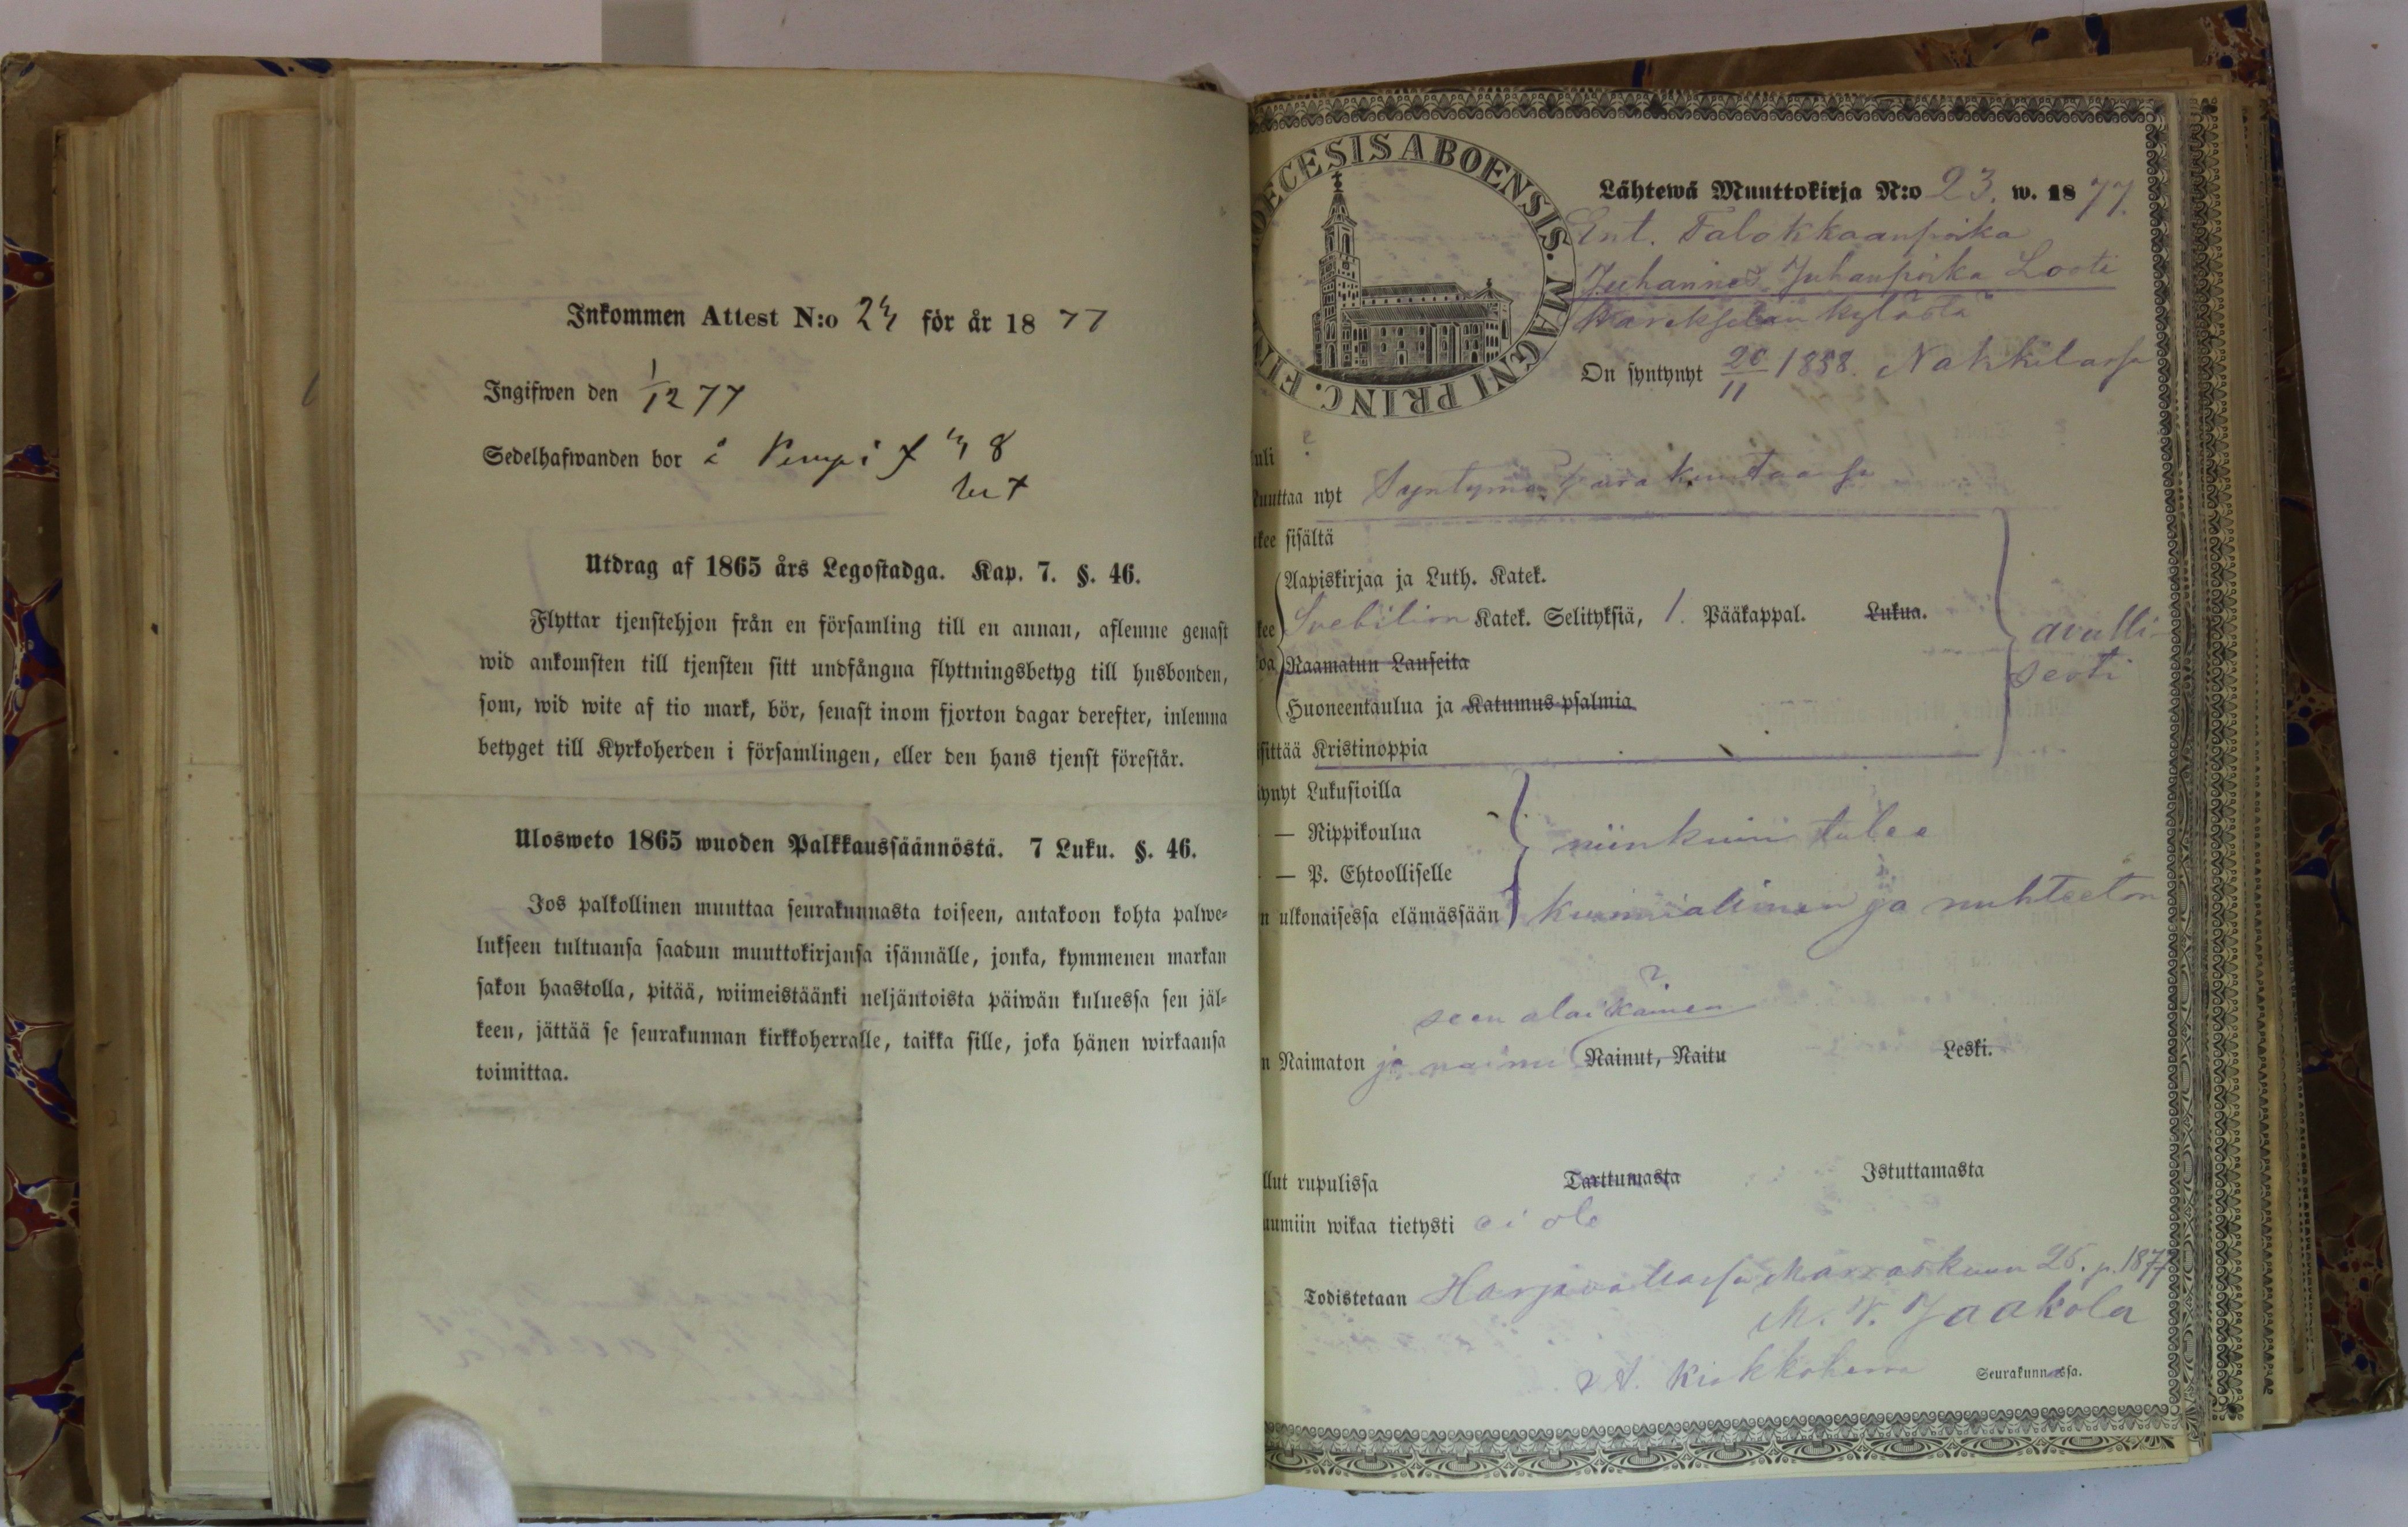 Inkommen Attest N:o 24 för år 1877
Ingifwen den 1/12 77
Sedelhafwanden bor å
Utdrag af 1865 års Legostadga. Kap. 7. §. 46.
Flyttar tjenstehjon från en församling till en annan, aflemne genast
wid ankomsten till tjensten sitt undfångna flyttningsbetyg till husbonden,
som, wid wite af tio mark, bör, senast inom fjorton dagar derefter, inlemna
betyget till Kyrkoherden i församlingen, eller den hans tjenst förestår.
Ulosweto 1865 wuoden Palkkaussäännöstä. 7 Luku. §. 46.
Jos palkollinen muuttaa seurakunnasta toiseen, antakoon kohta palwe-
lukseen tultuansa saadun muuttokirjansa isännälle, jonka, kymmenen markan
sakon haastolla, pitää, wiimeistäänki neljäntoista päiwän kuluessa sen jäl-
keen, jättää se seurakunnan kirkkoherralle, taikka sille, joka hänen wirkaansa
toimittaa.
OECESIS ABOENSIS. MAGNI PRINC. FIN
Lähtewä Muuttokirja N:o 23. w. 1877.
Ent. Talokkaanpoika
Juhannes Juhanpoika Looti
kylästä
On syntynyt 20/11 1858. Nakkilassa
uli
uuttaa nyt Syntymäpitäräkuntaansa
kee sisältä
Aapiskirjaa ja Luth. Katek.
kee Svebilion Katek. Selityksiä, 1. Pääkappal. Lukua.
oa Raamatun Lauseita
avulli-
sesti
Huoneentaulua ja Katumus psalmia
sittää Kristinoppia
ynyt Lukusioilla
— Rippikoulua
niinkuin tulee
— P. Ehtoolliselle
n ulkonaisessa elämässään kunniallinen ja nuhteeton
seen alaikäinen
n Naimaton ja naimi Nainut, Naitu Leski.
llut rupulissa Tarttumasta Istuttamasta
uumiin wikaa tietysti ei ole
Todistetaan Harjavallassa Marraskuun 26. p. 1877
M. V. Jaakola
v. t. Kirkkoherra Seurakunnassa.